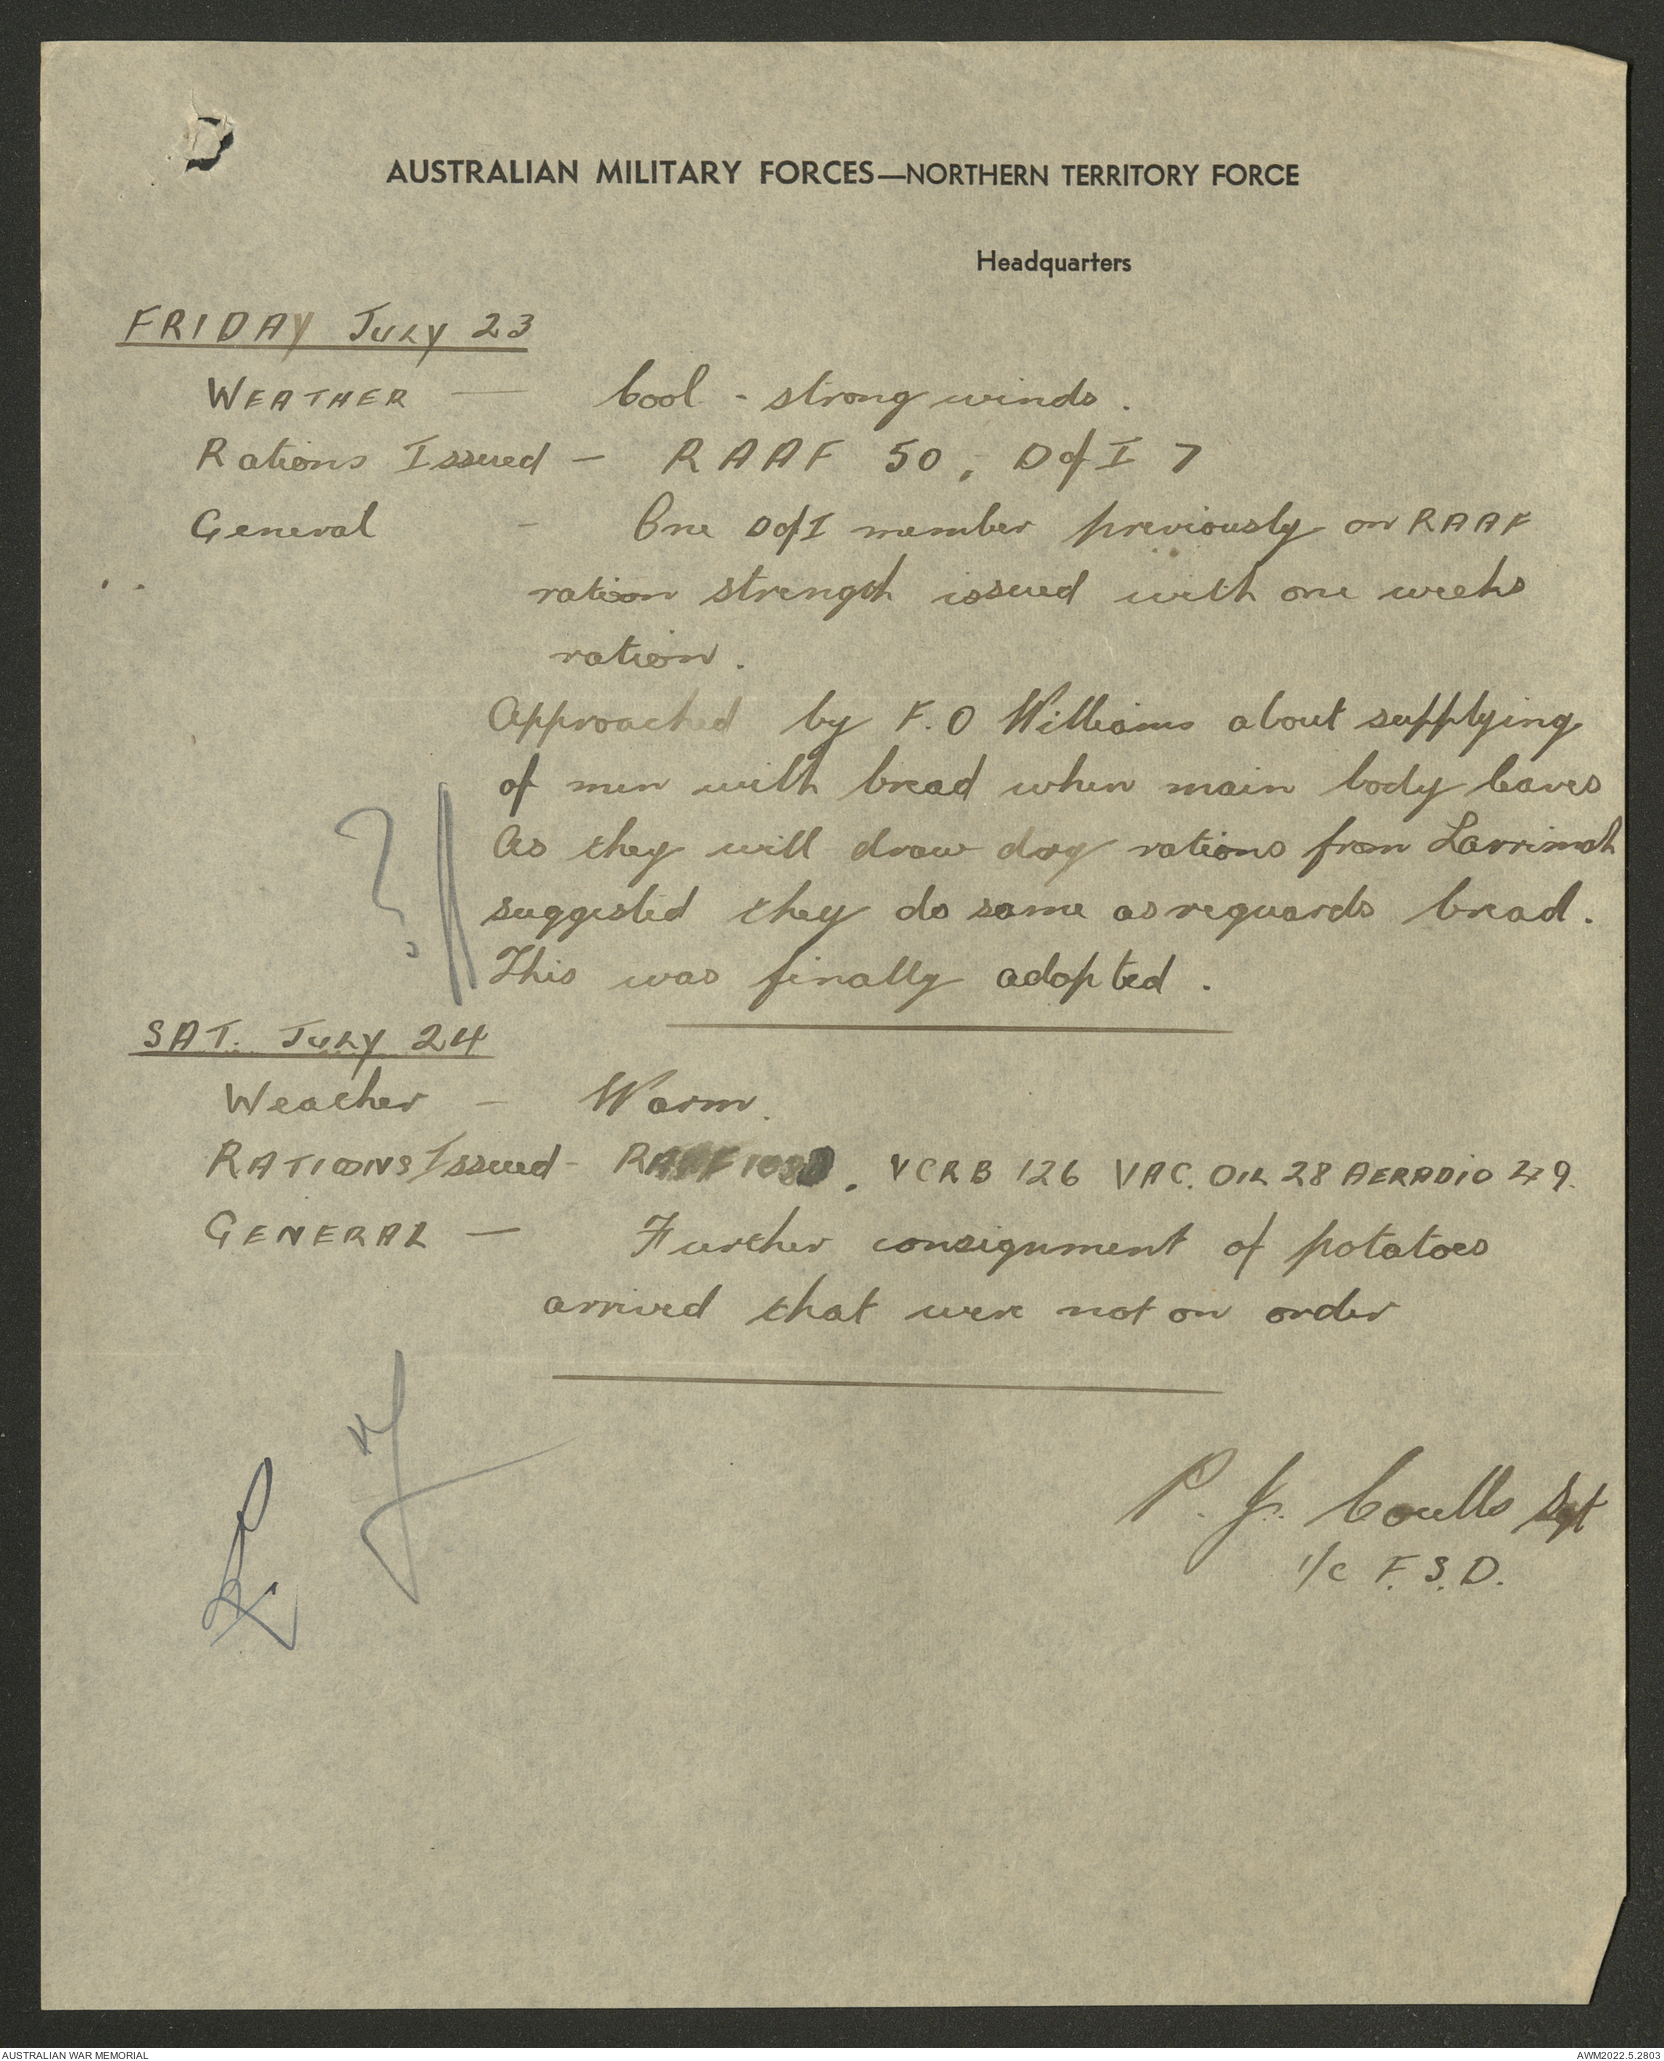 AUSTRALIAN MILITARY FORCES—NORTHERN TERRITORY FORCE
Headquarters
FRIDAY July 23
WEATHER — Cool - strong winds.
Rations Issued — RAAF 50, D of I 7
General - One D of I member previously on RAAF
ration strength issued with one weeks
ration.
Approached by F.O Williams about supplying
of men with bread when main body leaves
As they will draw dry rations from Larrimah
suggested they do same as reguards bread.
This was finally adopted.
?
SAT. July 24
Weather - Warm.
RATIONS Issued - RAAF, VCRB 126 VAC. OIL 28 AERADIO 49.
GENERAL — Further consignment of potatoes
arrived that were not on order
P. J. Coulls Sgt
i/c F.S.D.
AUSTRALIAN WAR MEMORIAL
AWM2022.5.2803